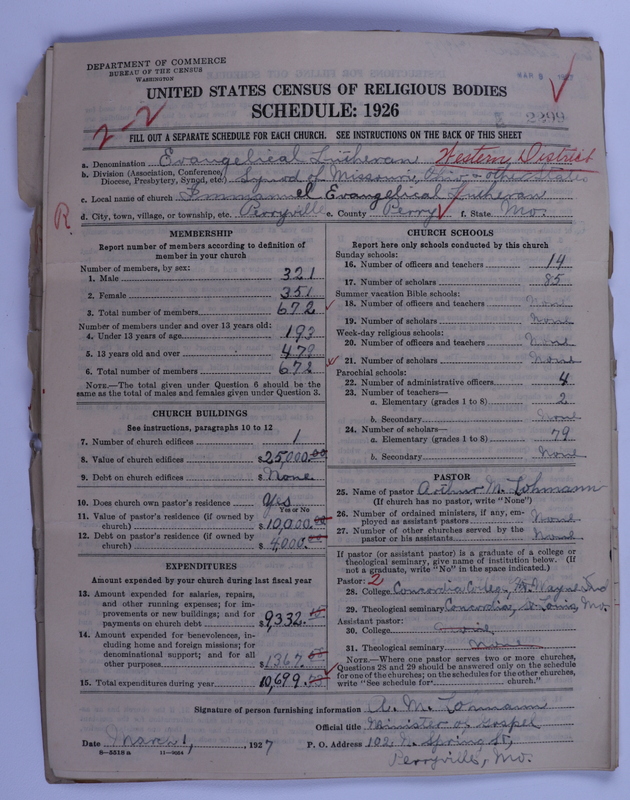 DEPARTMENT OF COMMERCE
BUREAU OF THE CENSUS
WASHINGTON
UNITED STATES CENSUS OF RELIGIOUS BODIES
SCHEDULE: 1926
2-2
FILL OUT A SEPARATE SCHEDULE FOR EACH CHURCH. SEE INSTRUCTIONS ON THE BACK OF THIS SHEET
a. Denomination Evangelical Lutheran Western District
b. Division (Association, Conference, Diocese, Presbytery, Synod, etc.) Synod of Missouri, Ohio & other States
c. Local name of church Immanuel Evangelical Lutheran
d. City, town, village, or township, etc. Perryville e. County Perry f. State Mo.
R
MEMBERSHIP
Report number of members according to definition of
member in your church
Number of members, by sex:
1. Male 321
2. Female 351
3. Total number of members 672
Number of members under and over 13 years old:
4. Under 13 years of age 193
5. 13 years old and over 479
6. Total number of members 672
NOTE.—The total given under Question 6 should be the
same as the total of males and females given under Question 3.
CHURCH BUILDINGS
See instructions, paragraphs 10 to 12
7. Number of church edifices 1
8. Value of church edifices $25,000.00
9. Debt on church edifices $None
10. Does church own pastor's residence Yes
Yes or No
11. Value of pastor's residence (if owned by
church) $10,000.00
12. Debt on pastor's residence (if owned by
church) $4,000.00
EXPENDITURES
Amount expended by your church during last fiscal year
13. Amount expended for salaries, repairs,
and other running expenses; for im-
provements or new buildings; and for
payments on church debt $9,332.
14. Amount expended for benevolences, in-
cluding home and foreign missions; for
denominational support; and for all
other purposes $1367.
15. Total expenditures during year 10,699.
CHURCH SCHOOLS
Report here only schools conducted by this church
Sunday schools:
16. Number of officers and teachers 14
17. Number of scholars 85
Summer vacation Bible schools:
18. Number of officers and teachers None
19. Number of scholars None
Week-day religious schools:
20. Number of officers and teachers None
21. Number of scholars None
Parochial schools:
22. Number of administrative officers 4
23. Number of teachers—
a. Elementary (grades 1 to 8) 2
b. Secondary None
24. Number of scholars—
a. Elementary (grades 1 to 8) 79
b. Secondary None
PASTOR
25. Name of pastor Arthur M. Lohmann
(If church has no pastor, write "None")
26. Number of ordained ministers, if any, em-
ployed as assistant pastors None
27. Number of other churches served by the
pastor or his assistants None
If pastor (or assistant pastor) is a graduate of a college or
theological seminary, give name of institution below. (If
not a graduate, write "No" in the space indicated.)
Pastor: 2
28. College Concordia College, Ft. Wayne Ind
29. Theological seminary Concordia, St. Louis, Mo.
Assistant pastor:
30. College None
31. Theological seminary None
NOTE.—Where one pastor serves two or more churches,
Questions 28 and 29 should be answered only on the schedule
for one of the churches; on the schedules for the other churches,
write "See schedule for church."
Signature of person furnishing information A. M. Lohmann
Official title Minister of Gospel
Date March 1, 1927 P. O. Address 102 N. Spring St,
8—5518a 11—9064
Perryville, Mo.